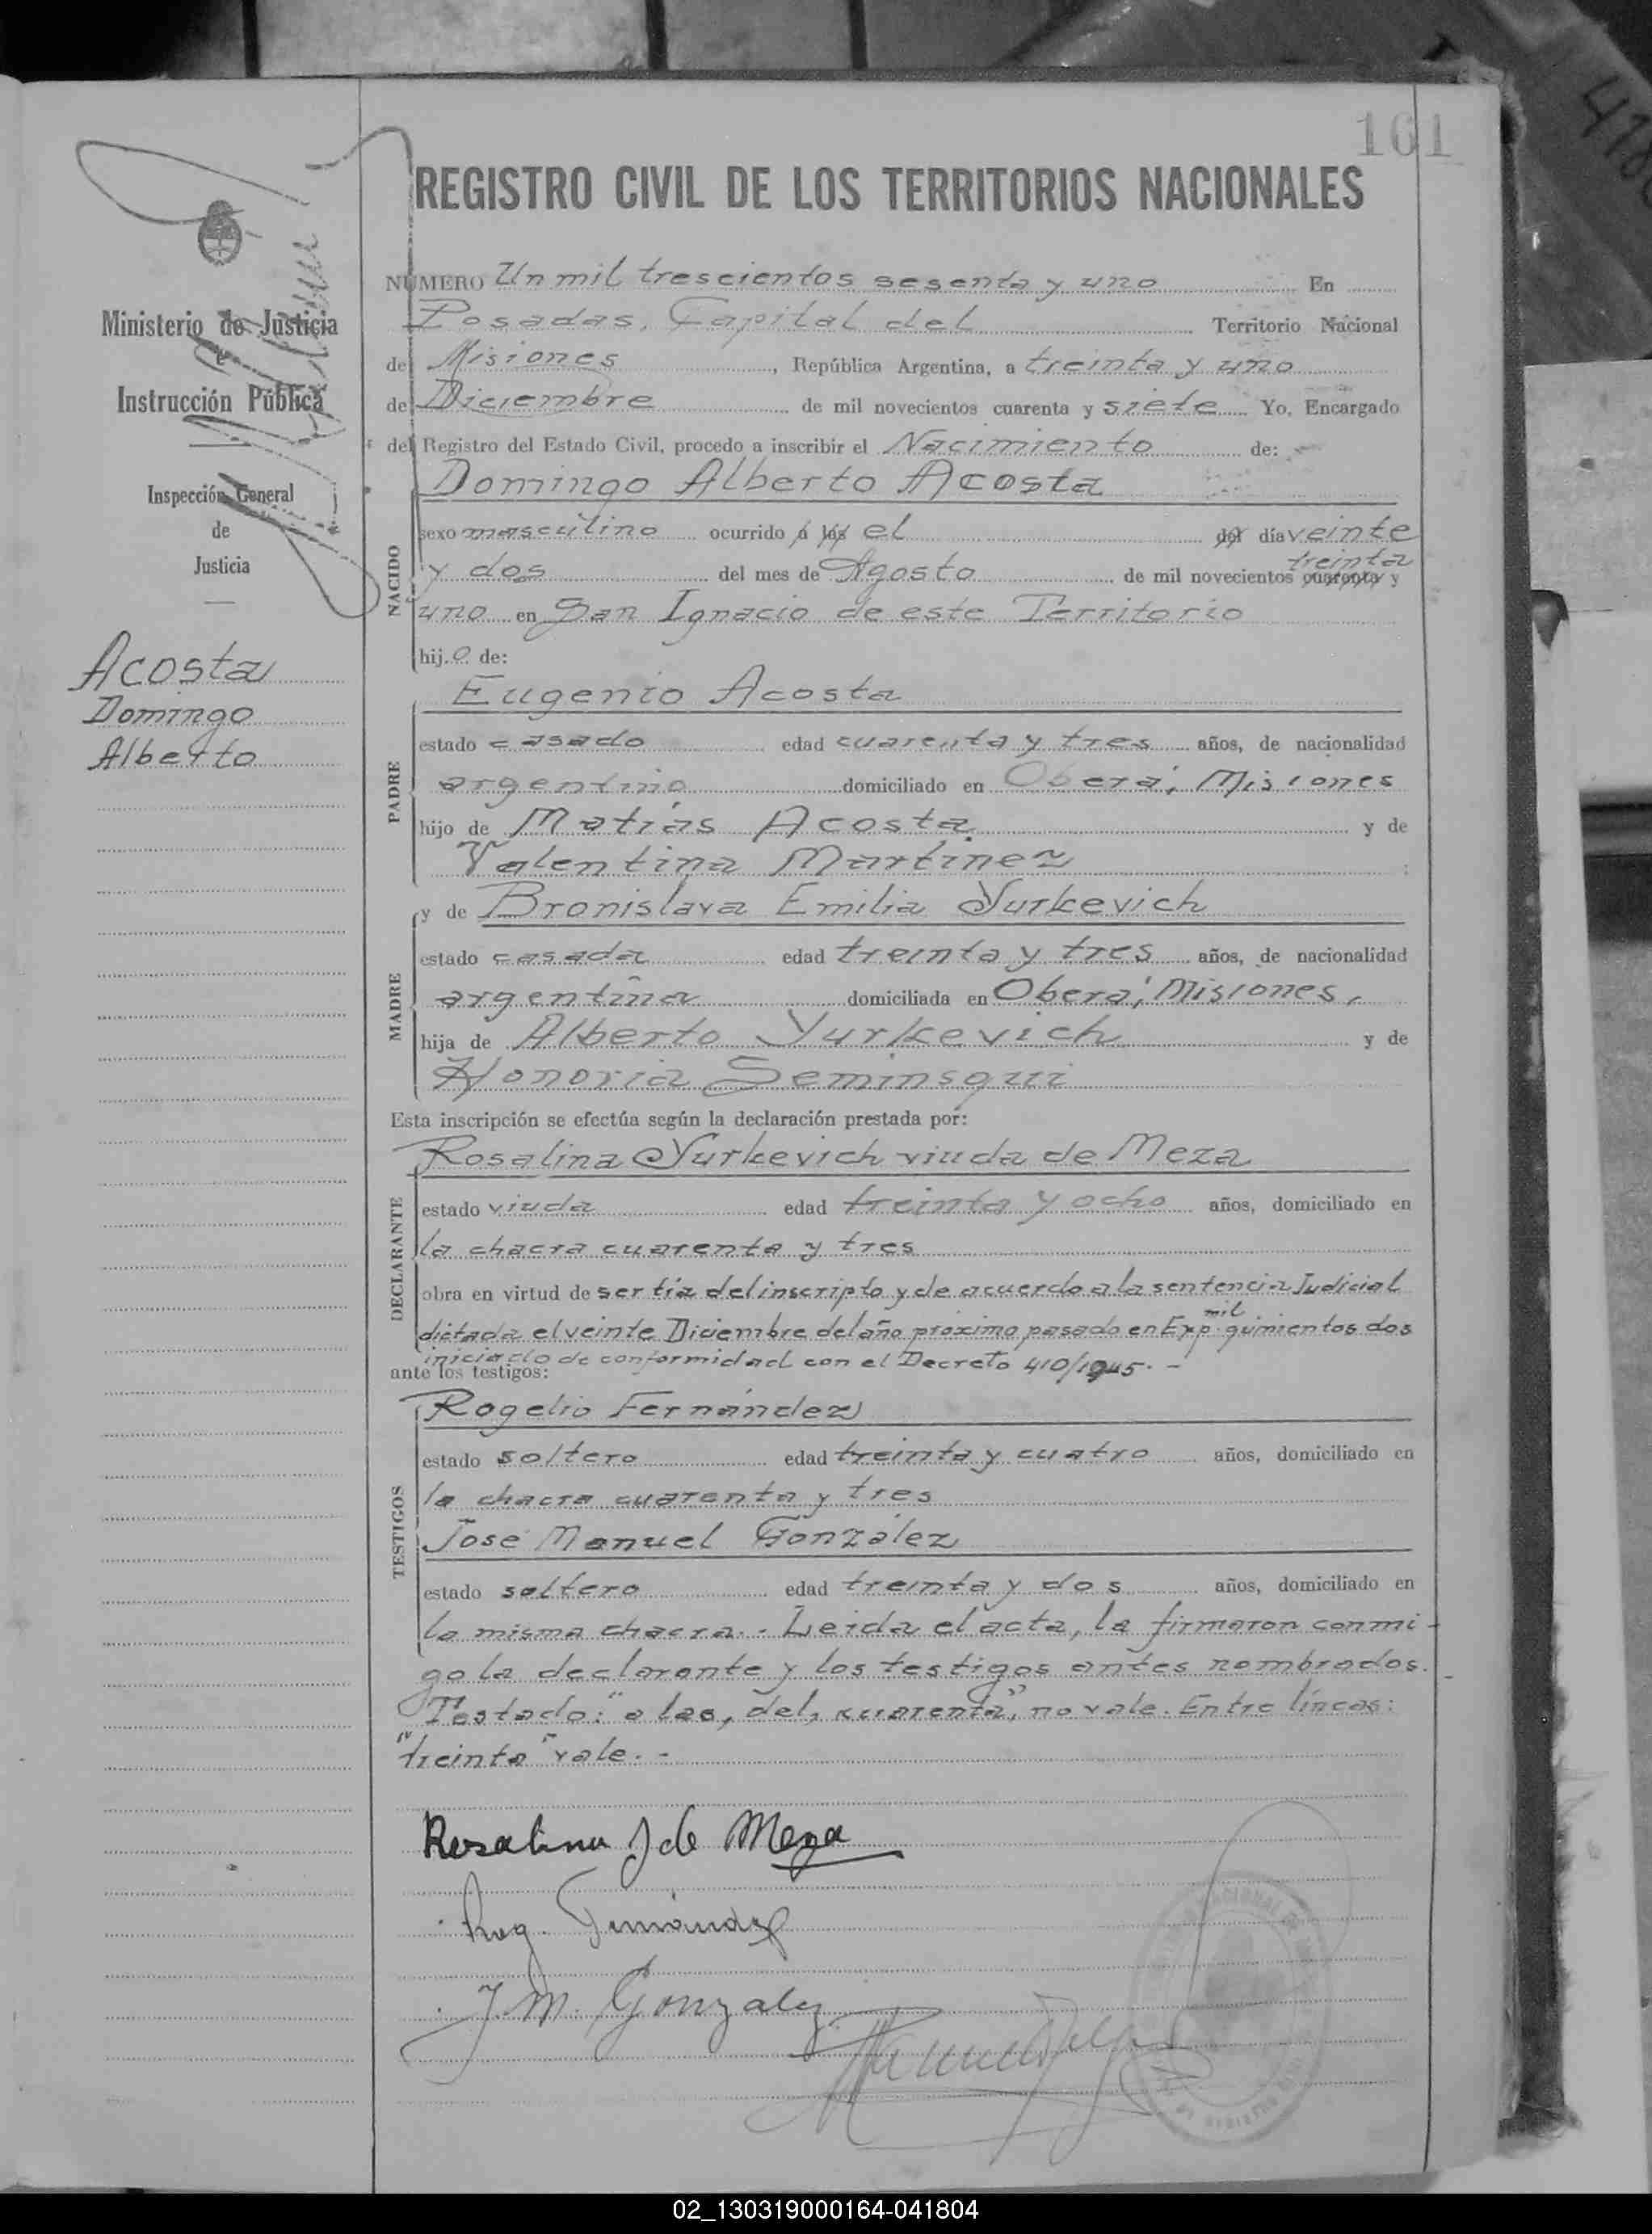 161
REGISTRO CIVIL DE LOS TERRITORIOS NACIONALES
Ministerio de Justicia
e
Instrucción Pública
Inspección General
de
Justicia
Acosta
Domingo
Alberto
NÚMERO Un mil trescientos sesenta y uno En
Posadas, Capital del Territorio Nacional
de Misiones, República Argentina, a treinta y uno
de Diciembre de mil novecientos cuarenta y siete Yo, Encargado
del Registro del Estado Civil, procedo a inscribir el Nacimiento de:
Domingo Alberto Acosta
NACIDO
sexo masculino ocurrido á las el del día veinte
treinta
y dos del mes de Agosto de mil novecientos cuarenta y
uno en San Ignacio de este Territorio
hijo de:
PADRE
Eugenio Acosta
estado casado edad cuarenta y tres años, de nacionalidad
argentino domiciliado en Oberá, Misiones
hijo de Matías Acosta y de
Valentina Martinez ;
MADRE
y de Bronislava Emilia Yurkevich
estado casada edad treinta y tres años, de nacionalidad
argentina domiciliada en Oberá, Misiones,
hija de Alberto Yurkevich y de
Honoria Seminsqui
Esta inscripción se efectúa según la declaración prestada por:
Rosalina Yurkevich viuda de Meza
DECLARANTE
estado viuda edad treinta y ocho años, domiciliado en
la chacra cuarenta y tres
obra en virtud de ser tía del inscripto y de acuerdo a la sentencia Judicial
mil
dictada el veinte Diciembre del año próximo pasado en Exp. quinientos dos
iniciado de conformidad con el Decreto 410/1945. -
ante los testigos:
TESTIGOS
Rogelio Fernández
estado soltero edad treinta y cuatro años, domiciliado en
la chacra cuarenta y tres
José Manuel González
estado soltero edad treinta y dos años, domiciliado en
la misma chacra. - Leida el acta, la firmaron conmi-
go la declarante y los testigos antes nombrados.-
Testado: "a las, del, cuarenta", no vale. Entre líneas:
"treinta" vale. -
Rosalina J de Meza
Rog. Fernández
J. M. Gonzalez
02_130319000164-041804